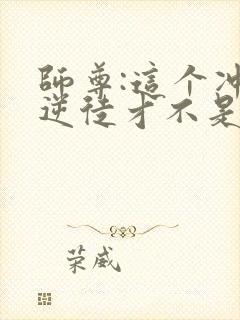 師尊:這个冲
逆徒才不是
荣威